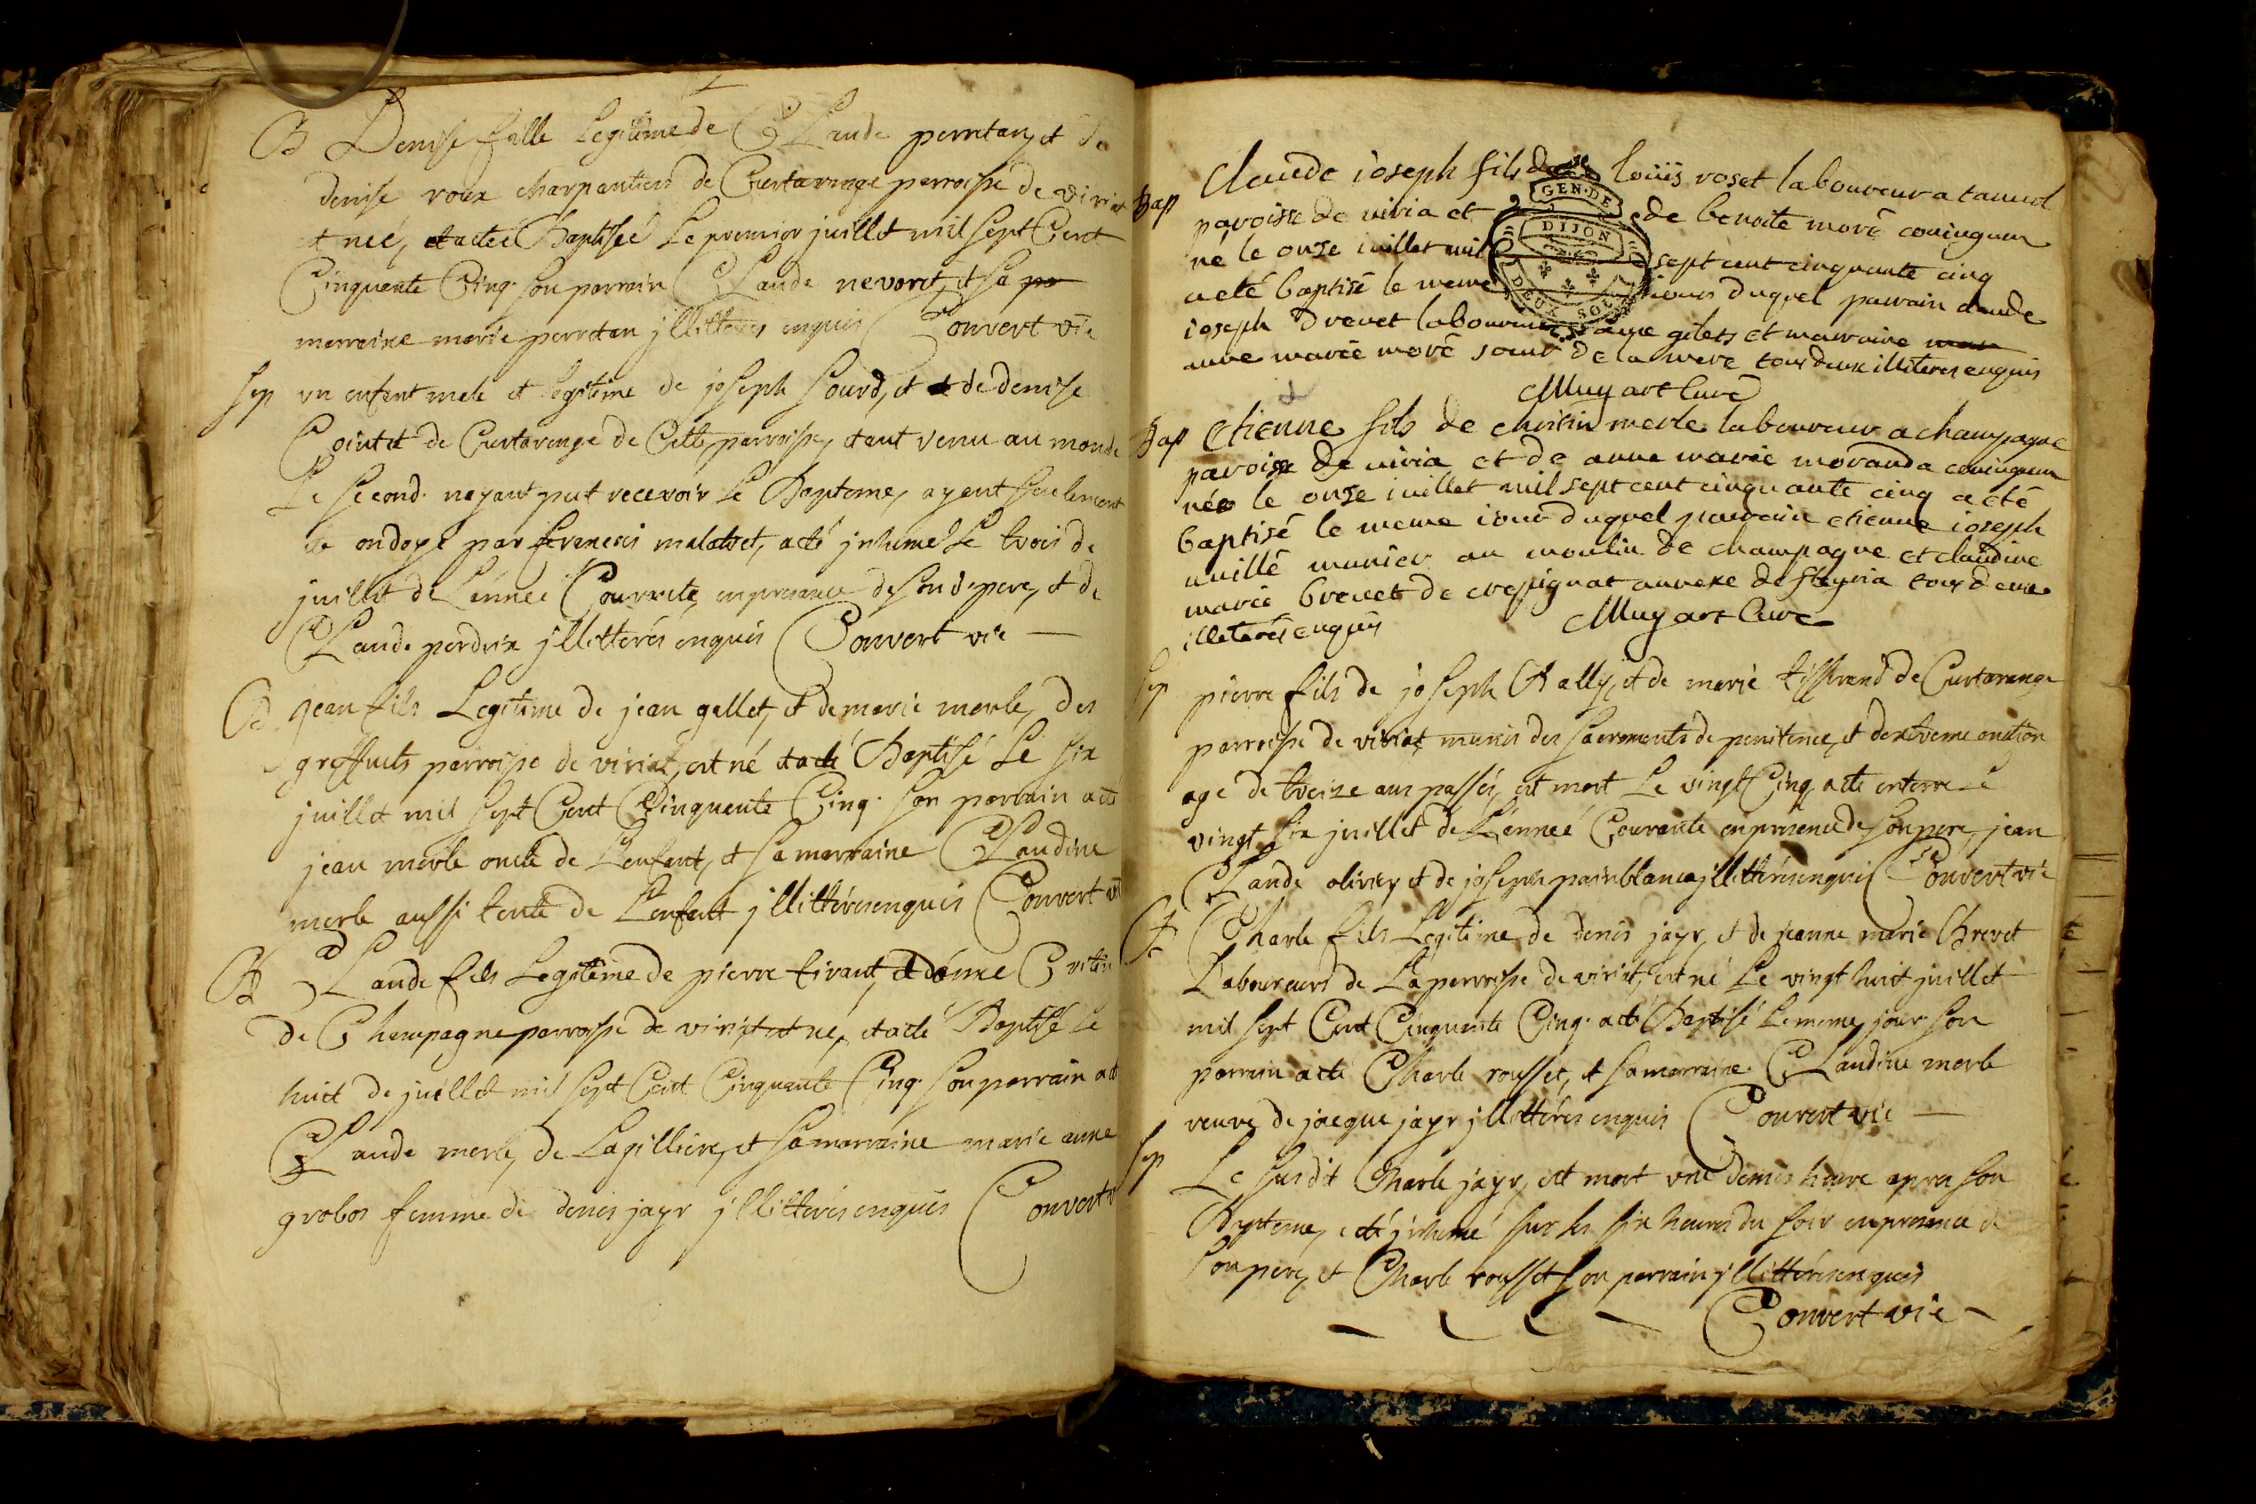 B Denise fille Legitime de Claude perretan, et de
denise roux charpantiers de Curtaringe parroisse de viriat
et neé, et acteé Baptiseé Le premier juillet mil sept Cent
Cinquante Cinq. son parrain Claude nevoret, et sa pa
marraine marie perretan jllitteres enquis Convert vic
Sep un enfant male et legitime de joseph sourd, et de denise
Cointet de Curtaringe de Cette parroisse, etant venu au monde
Le second. nayant put recevoir Le Bapteme, ayent seulement
ondoyé par , acté jnhumé Le trois de
juillet de L'enneé Courrente, en presence de son d. pere, et de
Claude perdrix jllitterés enquis Convert vic
B jean fils Legitime de jean gallet, et de marie merle, des
greffiets parroisse de viriat, est né et acté Baptisé Le six
juillet mil sept Cent Cinquante Cinq. son parrain acté
jean merle oncle de L'enfant, et sa marraine Claudine
merle aussi tente de L'enfant jllitterés enquis Convert vic
B Claude fils Legitime de pierre tirant, et d'enne
de Champagne parroisse de viriat et né, et acté Baptisé Le
huit de juillet mil sept Cent Cinquante Cinq. son parrain acté
Claude merle, de Lagilliere, et sa marraine marie anne
grobos femme de denis jayr jllitterés enquis Convert v
Bap Claude ioseph fils de loüis roset laboureur a
paroisse de viria et de benoite moré coniuguen
né le onze iuillet mil sept cent cinquante cinq
a eté baptisé le meme iour duquel parrain claude
ioseph Drevet laboureur gilets et marraine
anne marie moré soeur de la mere tous deux illiteres enquis
Muyart Curé
Bap Etienne fils de merle laboureur a champagne
paroisse de viria et de anne marie moranda coniuguen
né le onze iuillet mil sept cent cinquante cinq a eté
baptisé le meme iour duquel parrain etienne ioseph
munier au moulin de champagne et claudine
marie brevet de crespignat annexe de fleyria tous deux
illeterés enquis Muyart Curé
Sep pierre fils de joseph Rally, et de marie tisserand de Curtaringe
parroisse de viriat munis des sacrements de penitence, et d'extreme onction
age de treize ans passés, est mort Le vingt Cinq acté enterré Le
vingt six juillet de L'enneé Courante en presence de son pere, jean
Claude olivier et de joseph painblanc jllitterés enquis Convert vic
B Charle fils Legitime de denis jayr, et de jeanne marie Brevet
Laboureurs de La parroisse de viriat, est né Le vingt huit juillet
mil sept Cent Cinquante Cinq. acté Baptisé Le meme, jour son
parrain acté Charle rousset, et sa marraine. Claudine merle
veuve de jacque jayr jllitterés enquis Convert vic
Sep Le susdit Charle jayr, est mort une demis heure apres son
Bapteme, acté jnhumé sur les six heures du soir en presence de
son pere, et Charle rousset son parrain jllitterés enquis
Convert vic
GEN. DE
DIJON
DEUX SOLS